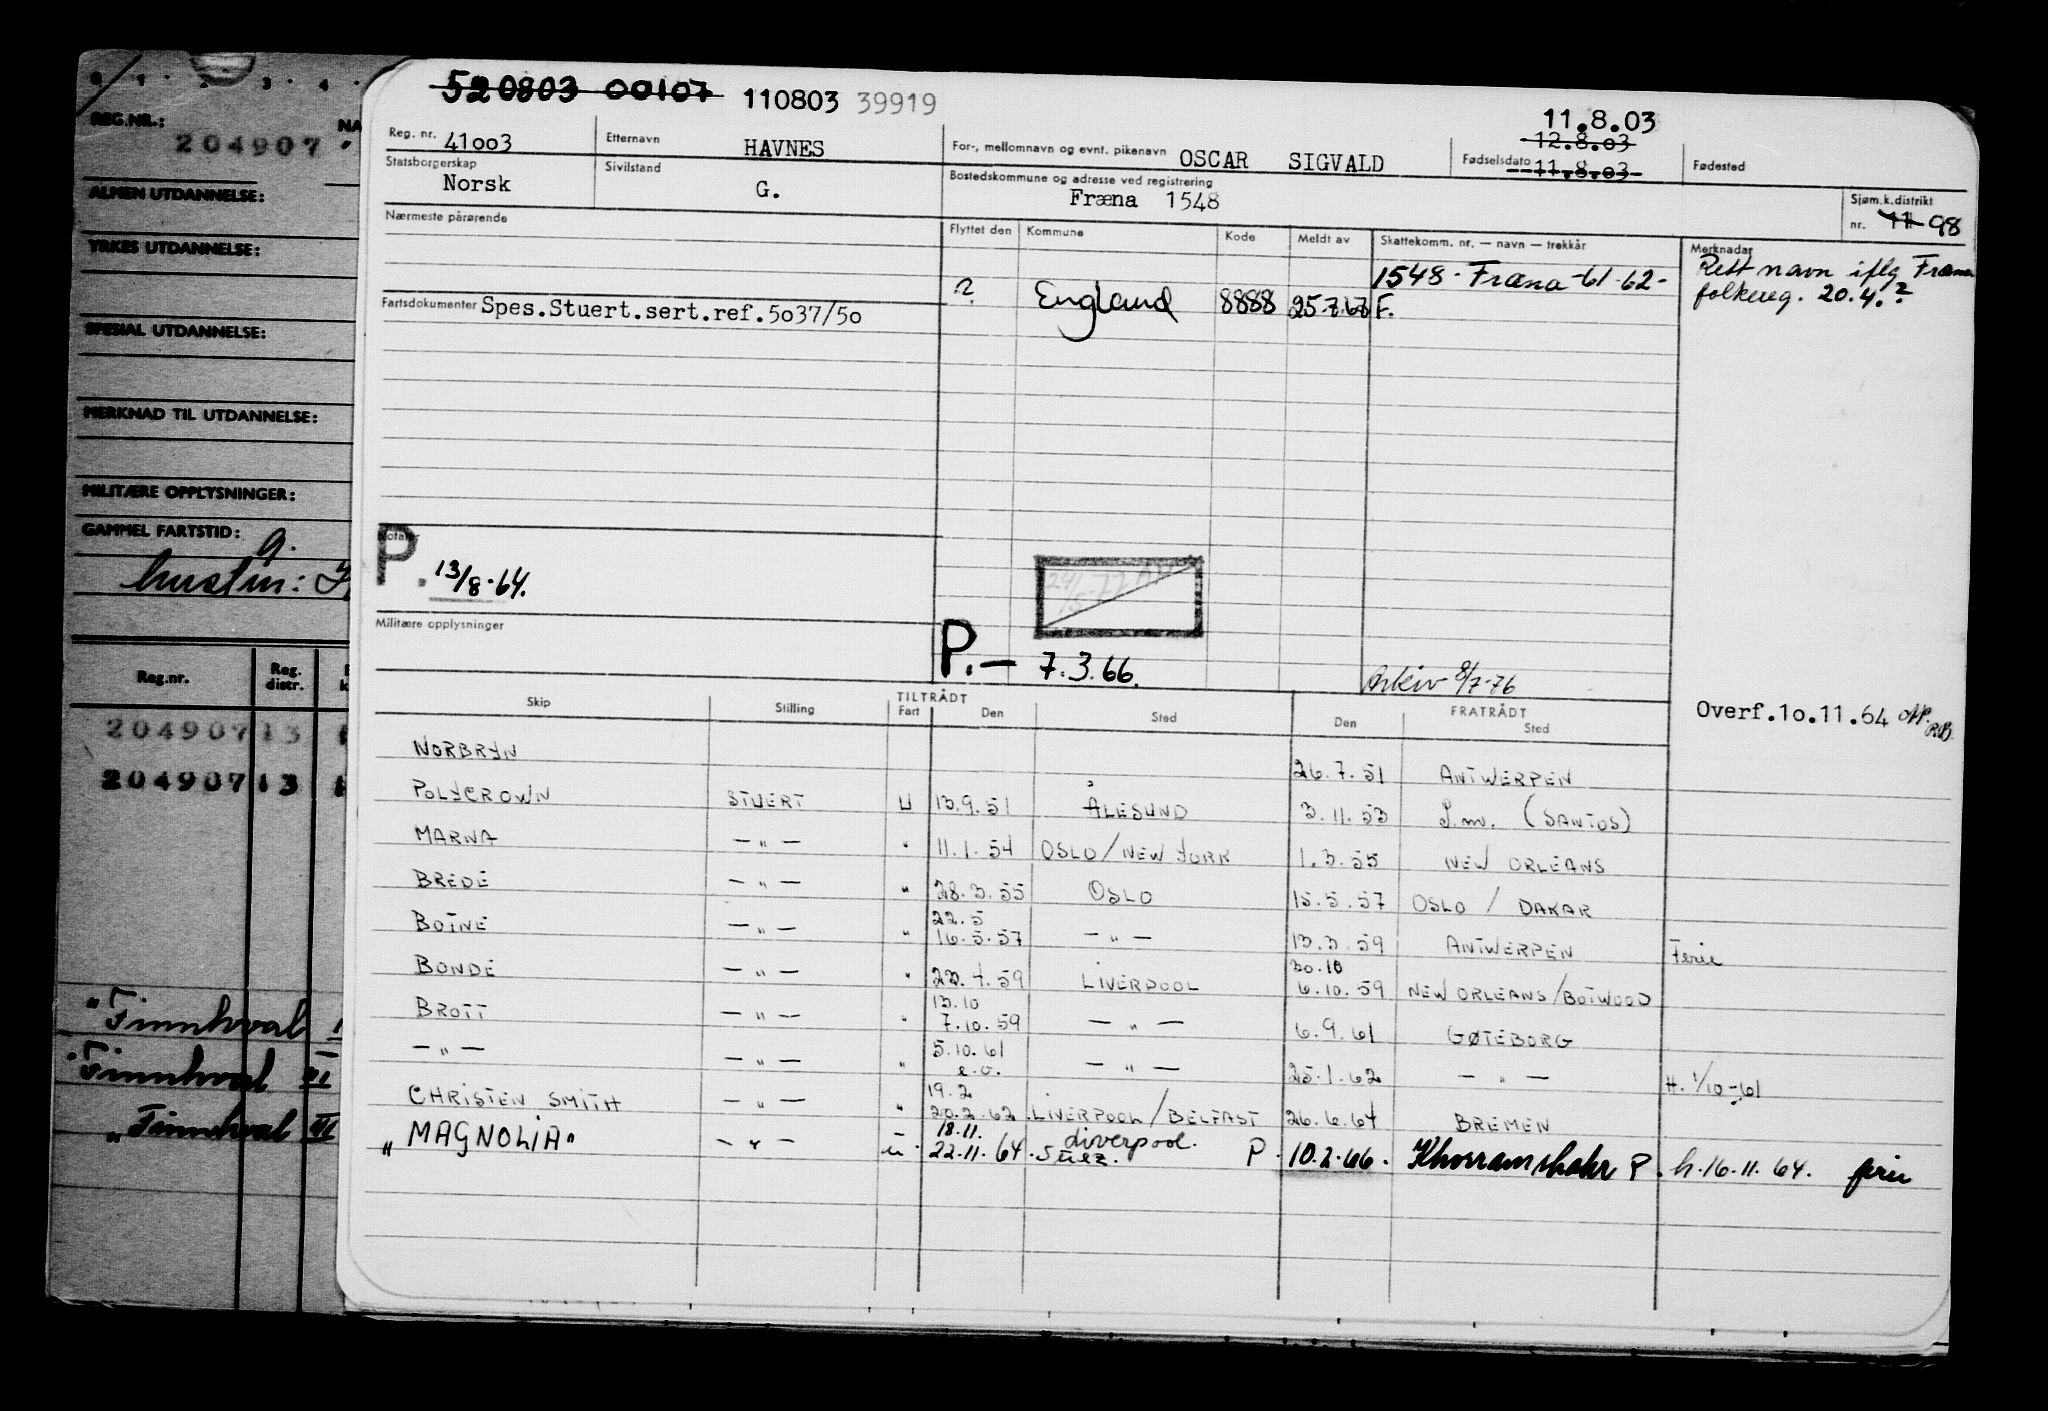 REG.NR.:
204907
NA
ALMEN UTDANNELSE:
YRKES UTDANNELSE:
SPESIAL UTDANNELSE:
MERKNAD TIL UTDANNELSE:
MILITÆRE OPPLYSNINGER:
GAMMEL FARTSTID:
g.
hustru:
Reg.nr. Reg. distr.
204907 13
204907 13
"Finnhval
"Finnhval VI
"Finnhval VI
520803 00107 110803 39919
11.8.03
12.8.03
Reg. nr. 41003 Etternavn HAVNES For-, mellomnavn og evnt. pikenavn OSCAR SIGVALD Fødselsdato 11.8.03 Fødested
Statsborgerskap Norsk Sivilstand G. Bostedskommune og adresse ved registrering Fræna 1548
Sjøm.k.distrikt nr. 11 98
Nærmeste pårørende
Flyttet den Kommune Kode Meldt av Skattekomm. nr. — navn — trekkår Merknader
1548 - Fræna -61-62-
? England 8888 25.7.67 F.
Rett navn iflg Fræna
folkereg. 20.4.?
Fartsdokumenter Spes.Stuert.sert.ref.5037/50
Notater
P. 13/8-64.
24/5-77
Militære opplysninger
P.— 7.3.66.
Arkiv 8/7-76
Overf.10.11.64
TILTRÅDT FRATRÅDT
Skip Stilling Fart Den Sted Den Sted
NORBRYN 26.7.51 ANTWERPEN
POLYCROWN STUERT U 13.9.51 ÅLESUND 3.11.53 S.m. (SANTOS)
MARNA — " — " 11.1.54 OSLO / NEW YORK 1.3.55 NEW ORLEANS
BREDE — " — " 28.3.55 OSLO 15.5.57 OSLO / DAKAR
22.5
BOTNE — " — " 16.5.57 — " — 13.3.59 ANTWERPEN Ferie
30.10
BONDE — " — " 22.4.59 LIVERPOOL 6.10.59 NEW ORLEANS/BOTWOOD
13.10
BROTT — " — " 7.10.59 — " — 6.9.61 GØTEBORG
5.10.61
— " — — " — " e.o. — " — 25.1.62 — " — H. 1/10-61
19.2
CHRISTEN SMITH — " — " 20.2.62 LIVERPOOL / BELFAST 26.6.64 BREMEN
18.11. Liverpool.
"MAGNOLIA" — " — u. 22.11.64. Suez. P. 10.2.66. Khorramshahr P. h.16.11.64. ferie